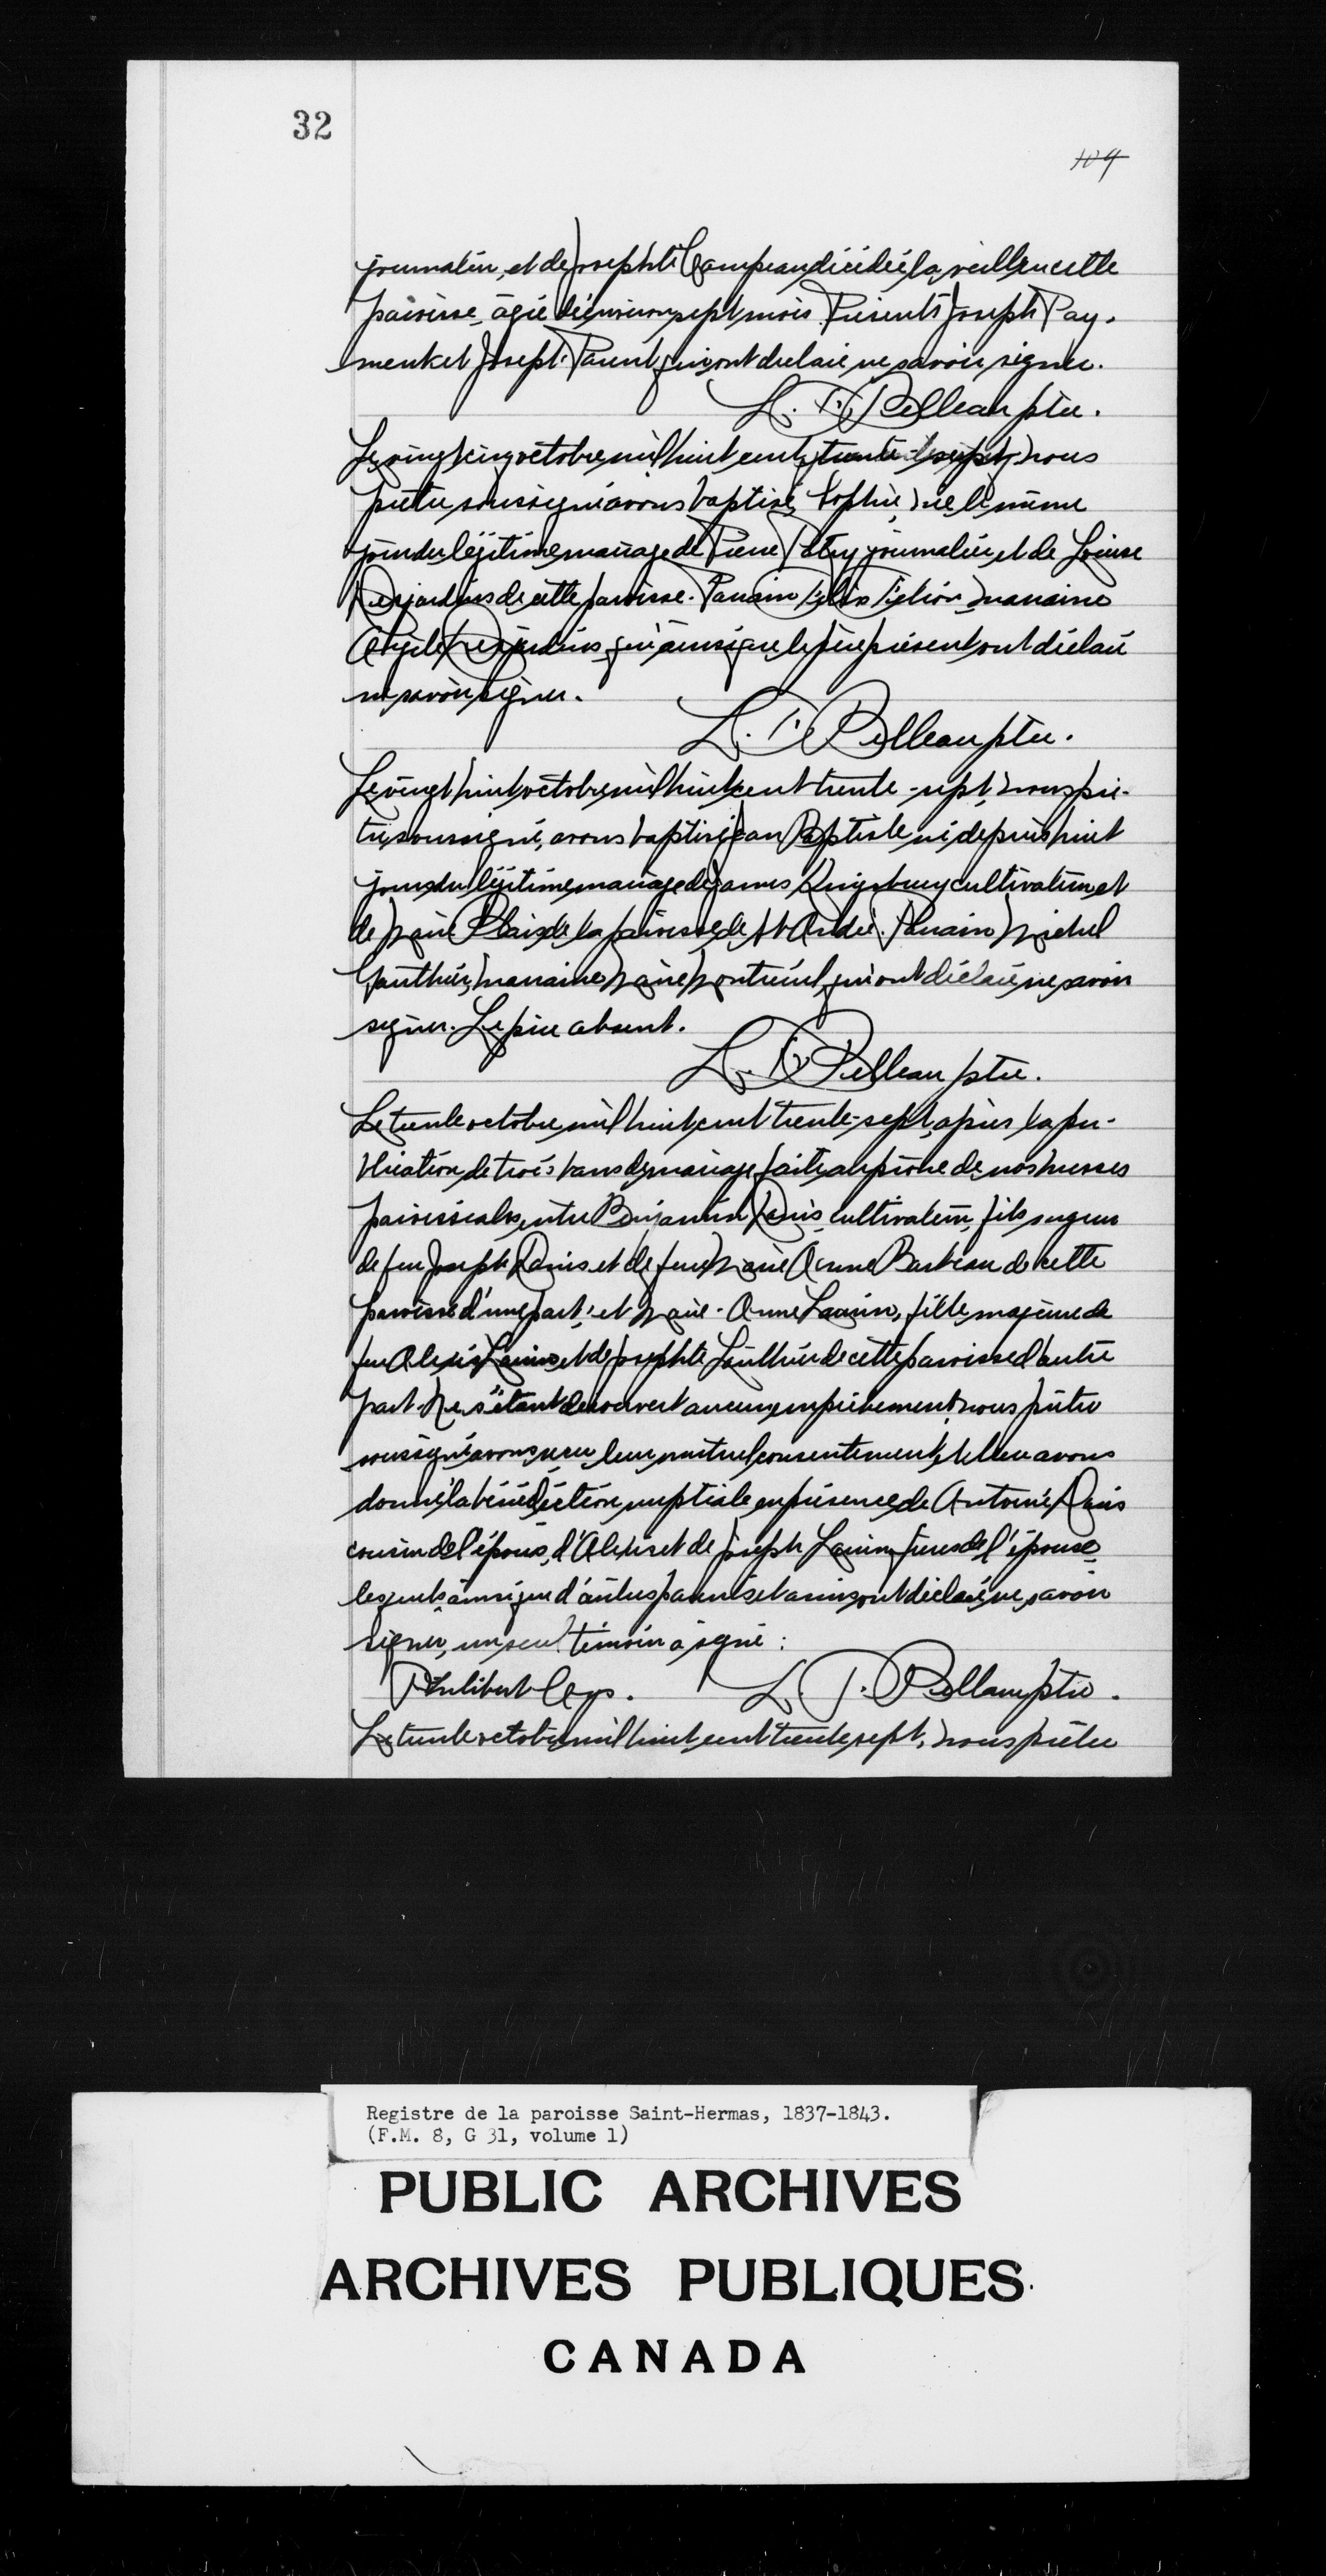 32
109
journalier, et de Josephte Campeau décédée la veille en cette
paroisse, âgée d'environ sept mois. Présents Joseph Pay-
ment et Joseph Parent qui ont déclaré ne savoir signer.
L. Pelleau ptre.
Le vingt cinq octobre mil huit cent trente sept, nous
prêtre soussigné avons baptisé Sophie, née le même
jour du légitime mariage de Pierre Patry journalier et de Louise
Desjardins de cette paroisse. Parrain Félix marraine
Desjardins, qui ainsi que le père présent ont déclaré
ne savoir signer.
L. Pelleau ptre.
Le vingt huit octobre mil huit cent trente-sept, nous prê-
tre soussigné, avons baptisé Jean Baptiste né depuis huit
jours du légitime mariage de James Kingsbury cultivateur et
de Marie Blais de la paroisse de St André. Parrain Michel
Gauthier, marraine Marie Montreuil, qui ont déclaré ne savoir
signer. Le père absent.
L. Pelleau ptre.
Le trente octobre mil huit cent trente-sept, après la pu-
blication de trois bans de mariage faite au prône de nos messes
paroissiales entre Benjamin Danis, cultivateur, fils majeur
de feu Joseph Danis et de feue Marie Anne Barbeau de cette
paroisse d'une part; et Marie-Anne Laurin, fille majeure de
feu Alexis Laurin et de Josephte Gauthier de cette paroisse d'autre
part. Ne s'étant découvert aucun empêchement, nous prêtre
soussigné avons reçu leur mutuel consentement et leur avons
donné la bénédiction nuptiale en présence de Antoine Danis
cousin de l'époux, d'Alexis et de Joseph Laurin frères de l'épouse,
lesquels ainsi que d'autres parents et amis ont déclaré ne savoir
signer, un seul témoin a signé:
Philibert L. Pelleau ptre.
Le trente octobre mil huit cent trente sept, nous prêtre
Registre de la paroisse Saint-Hermas, 1837-1843.
(F.M. 8, G 31, volume 1)
PUBLIC ARCHIVES
ARCHIVES PUBLIQUES
CANADA